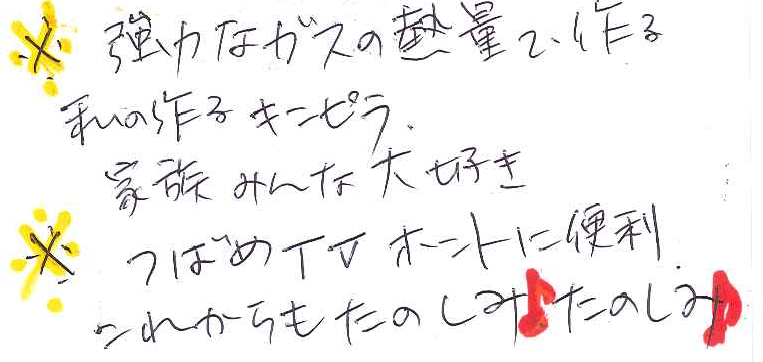 ※ 強力なガスの熱量で作る
私の作るキンピラ.
家族みんな大好き
※ つばめTV ホントに便利.
これからもたのしみ♪たのしみ♪